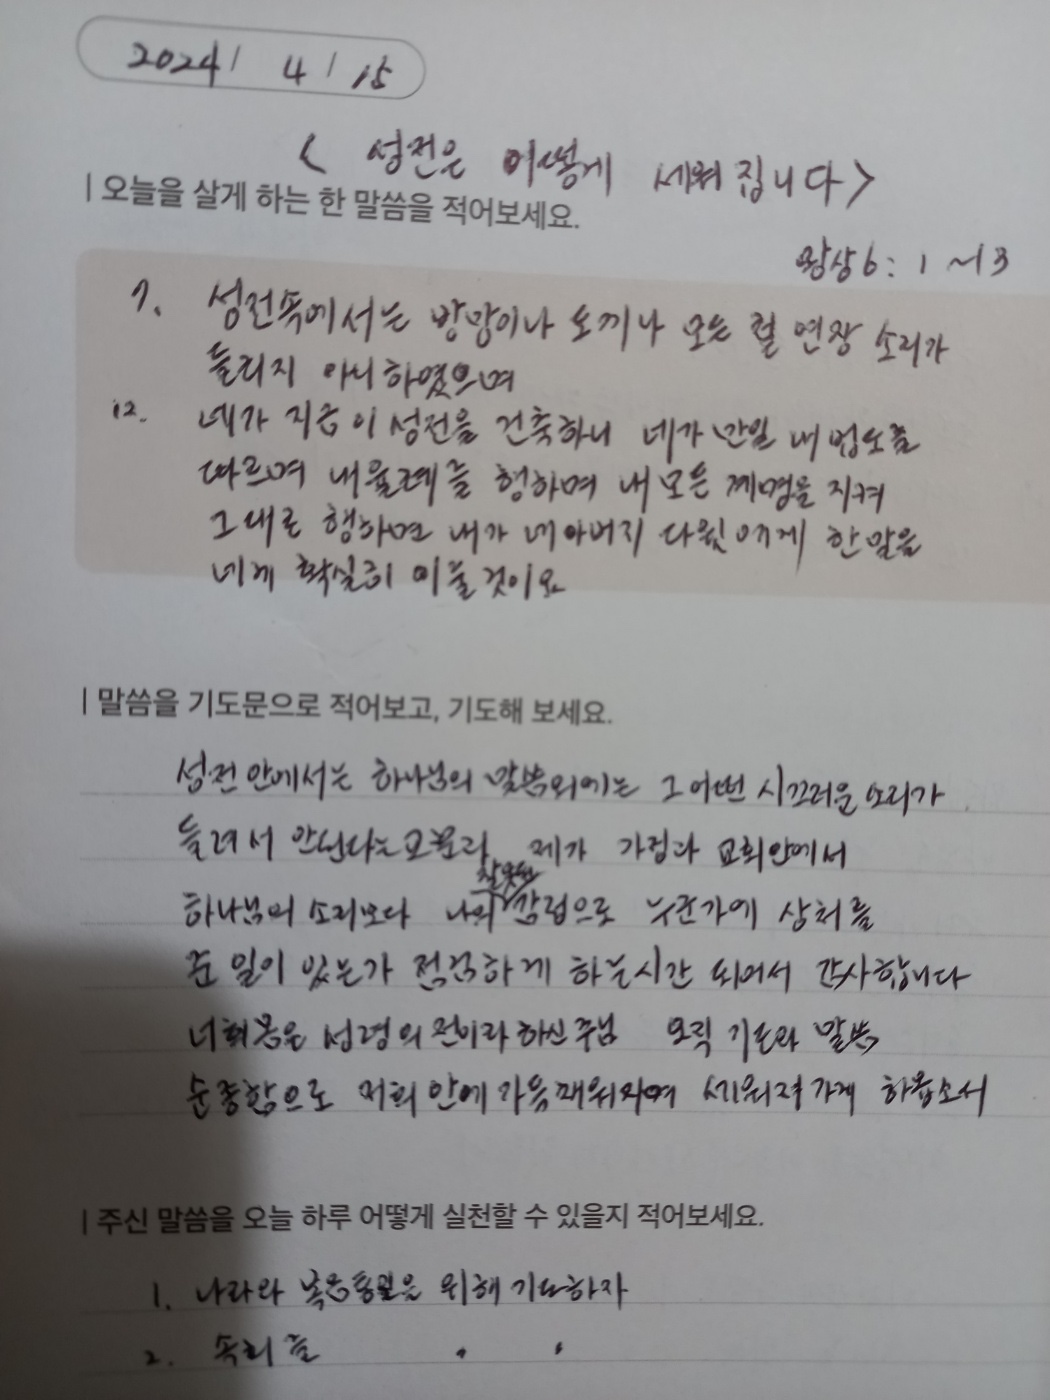 2024 / 4 / 15
< 성전은 어떻게 세워집니다 >
| 오늘을 살게 하는 한 말씀을 적어보세요.
왕상6: 1~13
7. 성전속에서는 방망이나 도끼나 모든 철 연장 소리가
들리지 아니하였으며
12. 네가 지금 이 성전을 건축하니 네가 만일 내 법도를
따르며 내 율례를 행하며 내 모든 계명을 지켜
그대로 행하면 내가 네 아버지 다윗에게 한 말을
네게 확실히 이룰 것이요
| 말씀을 기도문으로 적어보고, 기도해 보세요.
성전 안에서는 하나님의 말씀외에는 그 어떤 시끄러운 소리가
들려서 안된다는 제가 가정과 교회안에서
잘못된
하나님의 소리보다 나의 감정으로 누군가에 상처를
준 일이 있는가 점검하게 하는시간 되어서 감사합니다
너희 몸은 성령의 전이라 하신 주님 오직 기도와 말씀
순종함으로 저희 안에 가득채워지며 세워져가게 하옵소서
| 주신 말씀을 오늘 하루 어떻게 실천할 수 있을지 적어보세요.
1. 나라와 복음통일을 위해 기도하자
2. 목회를 〃 〃